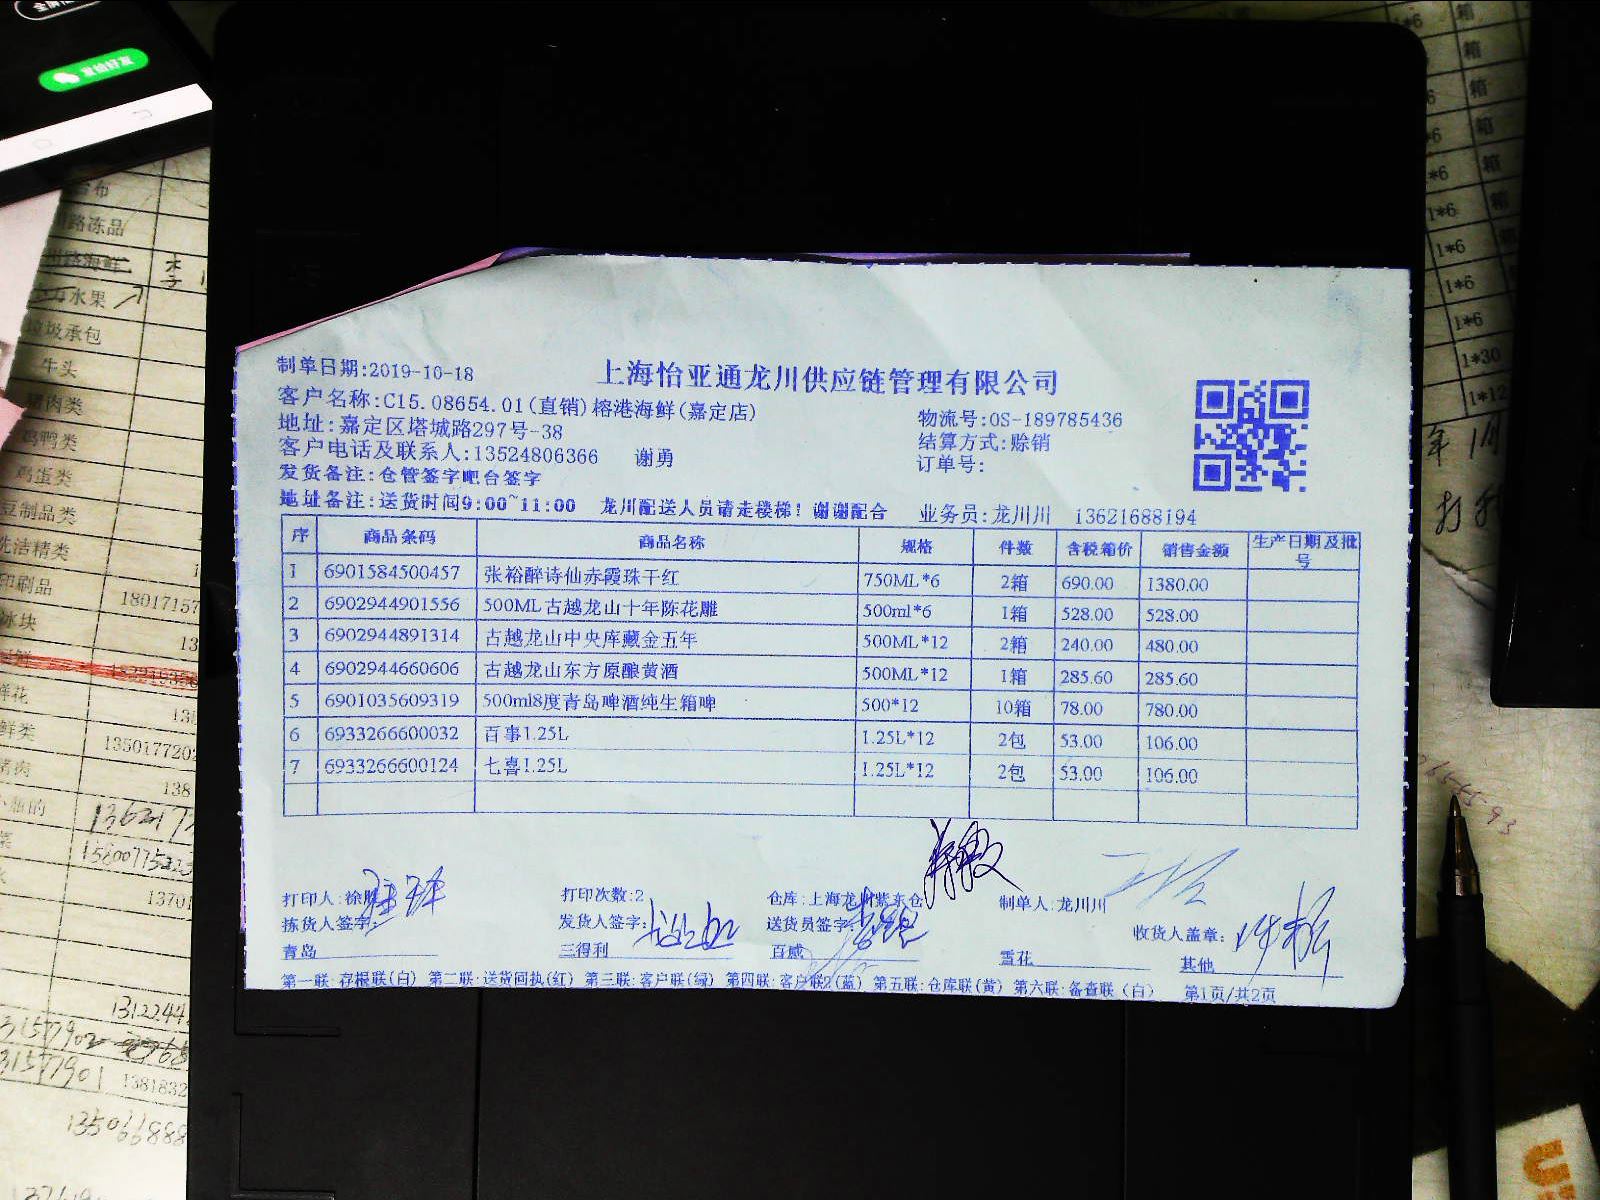 发给好友
台布
路冻品
海鲜 李
水果
垃圾承包
牛头
猪肉类
鸡鸭类
鸡蛋类
豆制品类
洗洁精类
印刷品 18017157
冰块 13
鲜花 131
鲜类 1350177202
猪肉 138
1362177
15800775223
13701
13122442
3157902
3157901 1381832
1*6 箱
箱
箱
箱
*6 箱
1*6 箱
1*6
1*6
1*6
1*30
1*12
年1月
制单日期:2019-10-18
上海怡亚通龙川供应链管理有限公司
客户名称:C15.08654.01(直销)榕港海鲜(嘉定店)
物流号:OS-189785436
地址:嘉定区塔城路297号-38
结算方式:赊销
客户电话及联系人:13524806366 谢勇
订单号:
发货备注:仓管签字吧台签字
地址备注:送货时间9:00~11:00 龙川配送人员请走楼梯!谢谢配合 业务员:龙川川 13621688194
序 商品条码 商品名称 规格 件数 含税箱价 销售金额 生产日期及批号
1 6901584500457 张裕醉诗仙赤霞珠干红 750ML*6 2箱 690.00 1380.00
2 6902944901556 500ML古越龙山十年陈花雕 500ml*6 1箱 528.00 528.00
3 6902944891314 古越龙山中央库藏金五年 500ML*12 2箱 240.00 480.00
4 6902944660606 古越龙山东方原酿黄酒 500ML*12 1箱 285.60 285.60
5 6901035609319 500ml8度青岛啤酒纯生箱啤 500*12 10箱 78.00 780.00
6 6933266600032 百事1.25L 1.25L*12 2包 53.00 106.00
7 6933266600124 七喜1.25L 1.25L*12 2包 53.00 106.00
打印人:徐 打印次数:2 仓库:上海龙川紫东仓 制单人:龙川川
拣货人签字: 发货人签字: 送货员签字: 收货人盖章:
青岛 三得利 百威 雪花 其他
第一联:存根联(白) 第二联:送货回执(红) 第三联:客户联(绿) 第四联:客户联2(蓝) 第五联:仓库联(黄) 第六联:备查联(白) 第1页/共2页